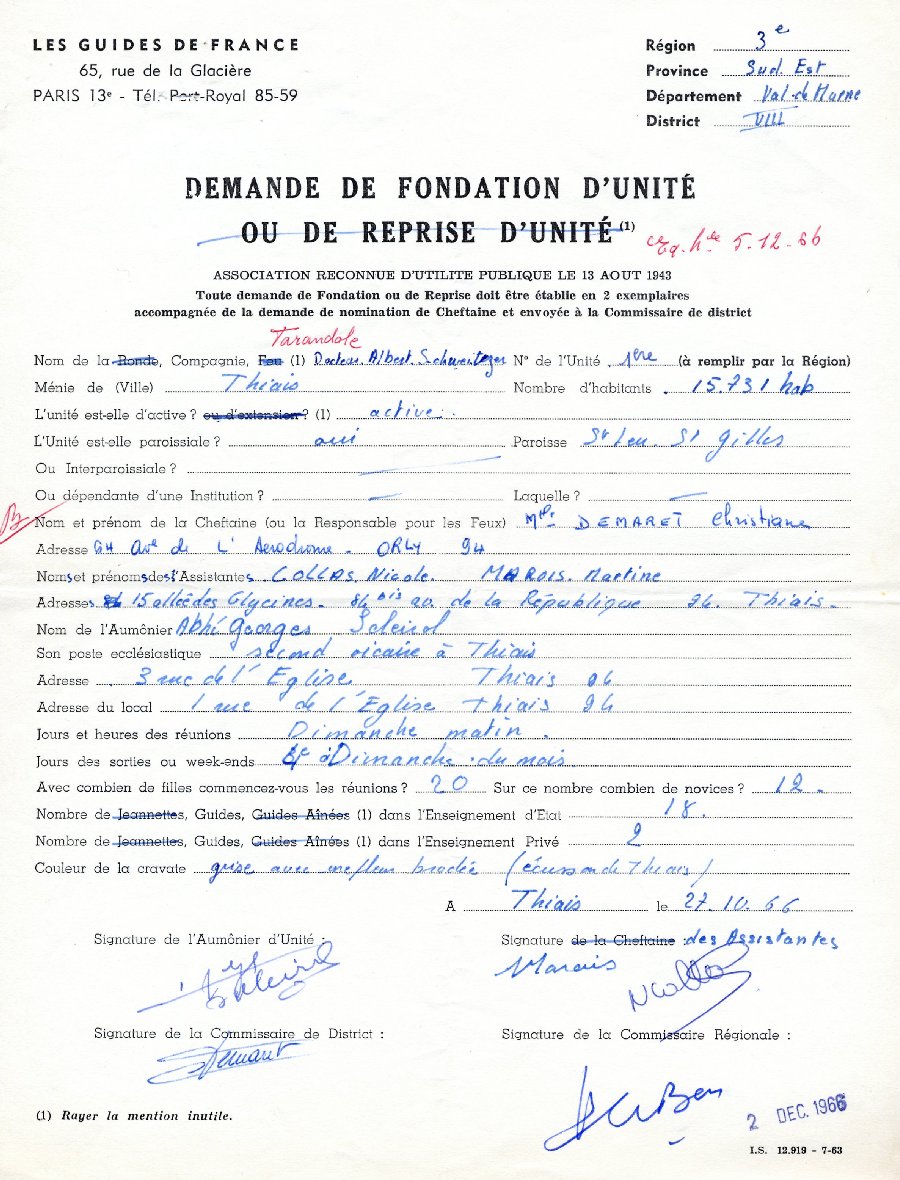 LES GUIDES DE FRANCE
65, rue de la Glacière
PARIS 13e - Tél. Port-Royal 85-59
Région 3e
Province Sud Est
Département Val-de-Marne
District VIII
DEMANDE DE FONDATION D'UNITÉ
OU DE REPRISE D'UNITÉ (1)
5-12-66
ASSOCIATION RECONNUE D'UTILITE PUBLIQUE LE 13 AOUT 1943
Toute demande de Fondation ou de Reprise doit être établie en 2 exemplaires
accompagnée de la demande de nomination de Cheftaine et envoyée à la Commissaire de district
Tarandole
Nom de la Ronde, Compagnie, Feu (1) Docteur Albert Schweitzer N° de l'Unité 1ère (à remplir par la Région)
Ménie de (Ville) Thiais Nombre d'habitants 15.731 hab
L'unité est-elle d'active ? ou d'extension ? (1) active
L'Unité est-elle paroissiale ? oui Paroisse St Leu St Gilles
Ou Interparoissiale ?
Ou dépendante d'une Institution ? Laquelle ?
Nom et prénom de la Cheftaine (ou la Responsable pour les Feux) Mlle DEMARET Christiane
Adresse 64 Ave de L'Aérodrome - ORLY 94
Noms et prénoms des l'Assistantes COLLAS Nicole. MAROIS Martine
Adresses 15 allée des Glycines - 84 bis av. de la République 94. Thiais.
Nom de l'Aumônier Abbé Georges
Son poste ecclésiastique second vicaire à Thiais
Adresse 3 rue de l'Eglise Thiais 94
Adresse du local 1 rue de l'Eglise Thiais 94
Jours et heures des réunions Dimanche matin.
Jours des sorties ou week-ends 4e Dimanche du mois
Avec combien de filles commencez-vous les réunions ? 20 Sur ce nombre combien de novices ? 12.
Nombre de Jeannettes, Guides, Guides Aînées (1) dans l'Enseignement d'Etat 18.
Nombre de Jeannettes, Guides, Guides Aînées (1) dans l'Enseignement Privé 2
Couleur de la cravate grise avec une fleur brodée (écusson de Thiais)
A Thiais le 27.10.66
Signature de l'Aumônier d'Unité :
Signature de la Cheftaine : des Assistantes
Marois
Signature de la Commissaire de District :
Signature de la Commissaire Régionale :
2 DEC. 1966
(1) Rayer la mention inutile.
I.S. 12.919 - 7-63